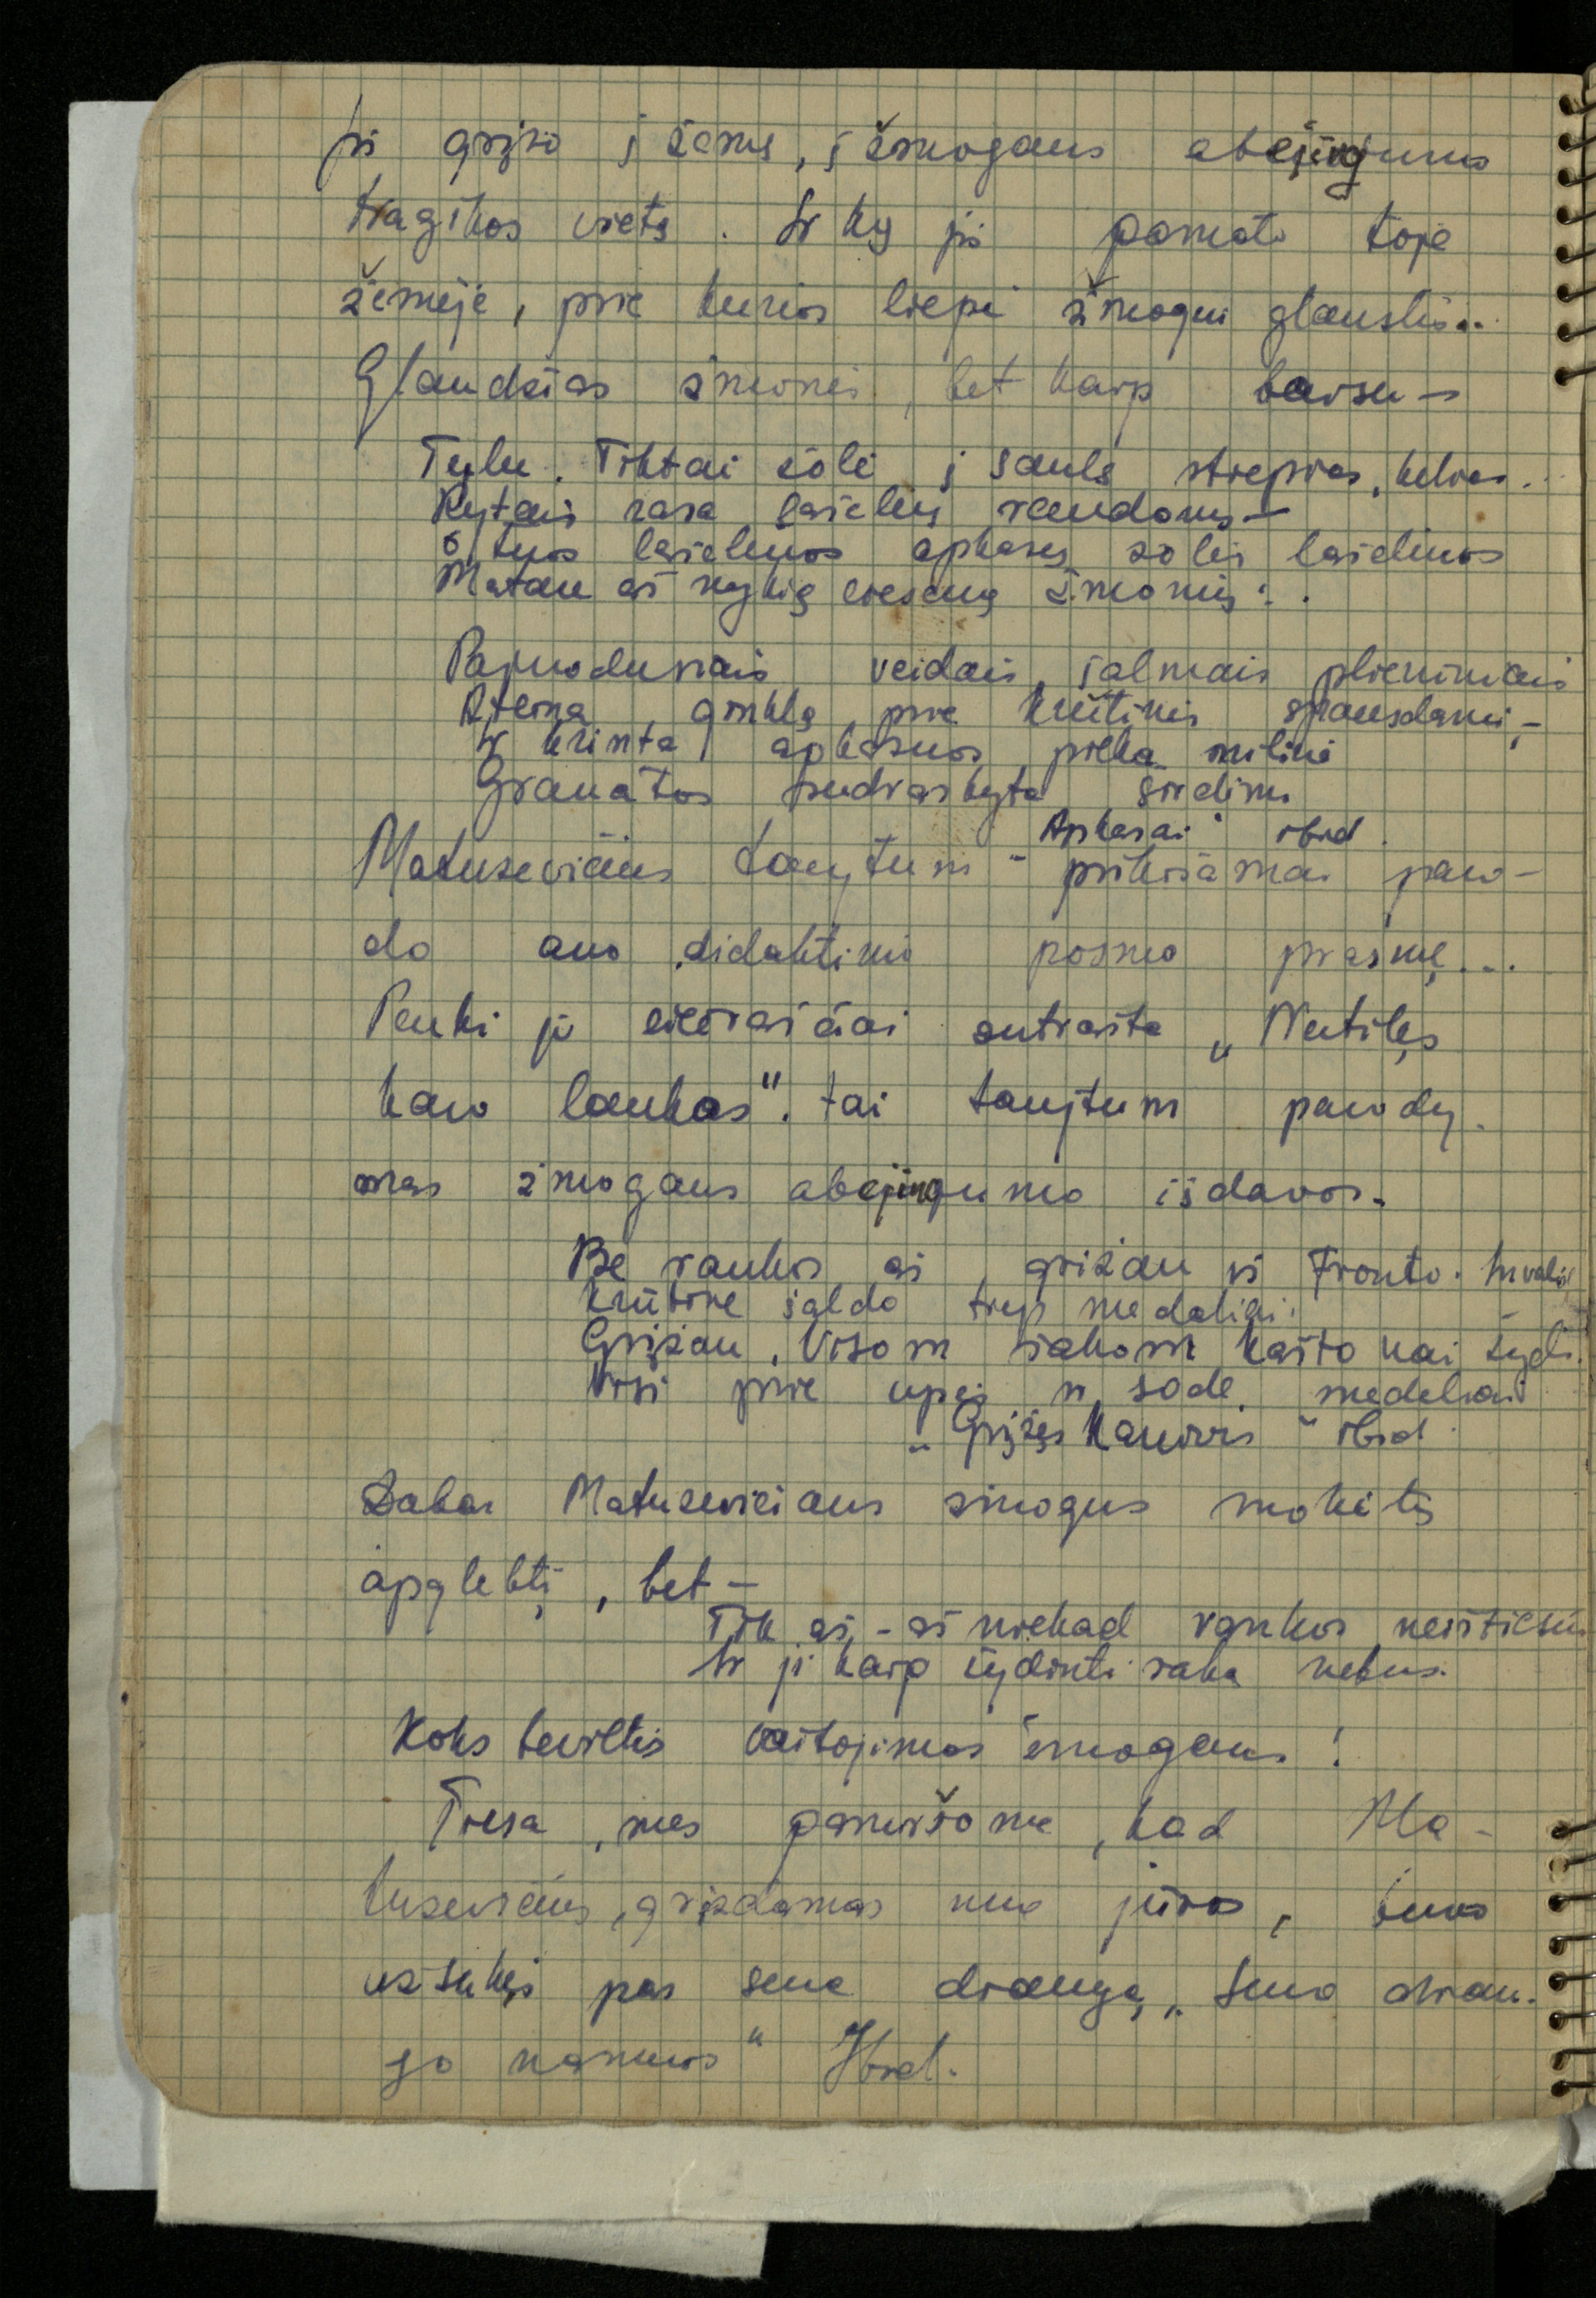 jis grįžo į žemę, į žmogaus abejingumo
tragikos vietą. Ir ką jis pamato toje
žemėje, prie kurios liepė žmogui glaustis..
Glaudžias žmonės, bet kaip baisu –
Tylu. Tiktai žolė į saulę stiepias, kelias..
Rytais rasa lašelių raudonų –
O tuos lašelius apkasų žolės lašelinos
Matau aš nykią eiseną žmonių..
Pajuodusiais veidais, šalmais plieniniais
Ateina, ginklą prie krūtinės spausdami, –
Ir krinta apkasuos pilka miline
Granatos sudraskyta širdimi
"Apkasai" ibid.
Matusevičius tarytum prikišamai paro-
do ano didaktinio posmo prasmę...
Penki jo eilėraščiai antrašte „Nutilęs
karo laukas". tai tarytum parody-
mas žmogaus abejingumo išdavos.
Be rankos aš grįžau iš fronto. Invalid
Krūtinę šaldo trys medaliai.
Grįžau. Visom šakom kaštonai žydi.
Visi prie upės ir sode medeliai
„Grįžęs kareivis" ibid
Dabar Matusevičiaus žmogus mokėtų
apglėbti, bet –
Tik aš, – aš niekad rankos neištiesiu
Ir ji kaip žydinti šaka nebus.
Koks beviltis vaitojimas žmogaus!
Tiesa, mes pamiršome, kad Ma-
tusevičius, grįždamas nuo jūros, buvo
užsukęs pas seną draugą, „Seno drau-
go namuos" Ibid.